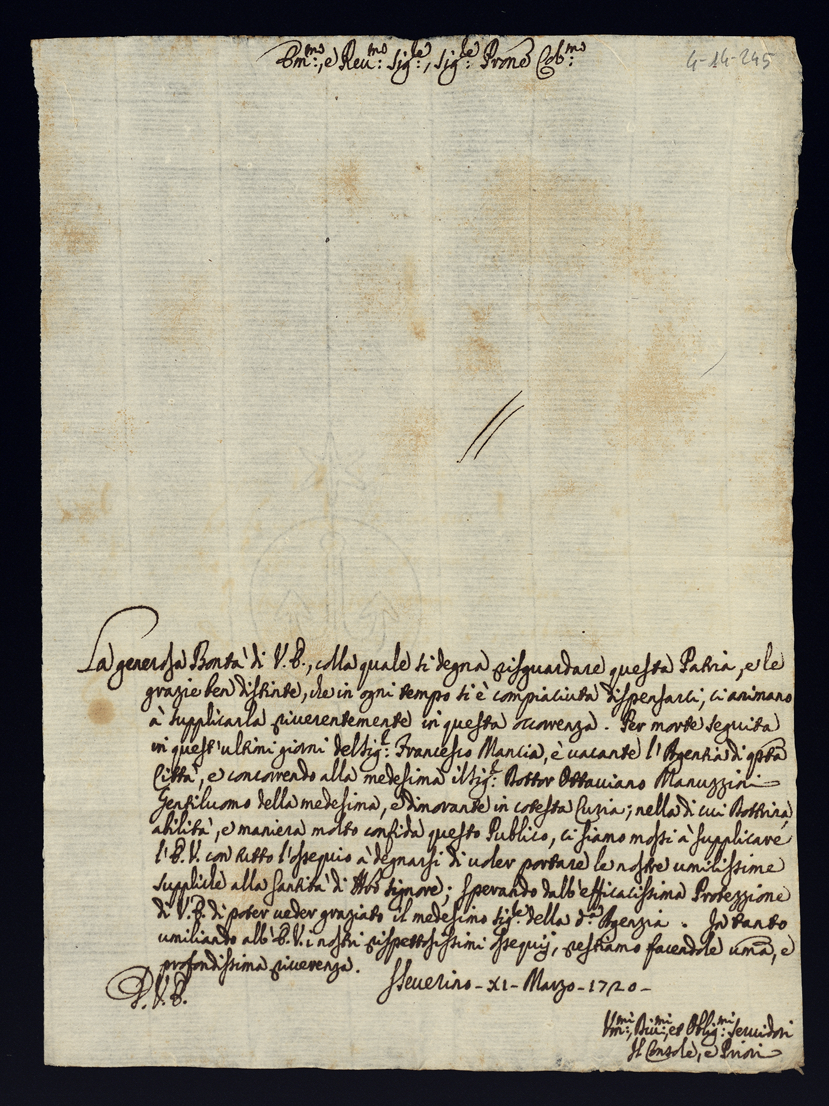 Em:mo, e Reu:mo Sig:re, Sig:re Prone Col:mo
4-14-245
La generosa Bontà di V.E., colla quale si degna risguardare questa Patria, e le
grazie ben distinte, che in ogni tempo si è compiaciuta dispensarci, ci animano
à supplicarla riuerentemente in questa occorrenza. Per morte seguita
in quest'ultimi giorni del Sig:r Francesco Mancia, è uacante l'Agentia di qsta
Città, e concorrendo alla medesima il Sig:r Dottor Ottauiano Manuzzini
Gentiluomo della medesima, e dimorante in cotesta Curia; nella di cui Dottrina,
abilità, e maniera molto confida questo Publico, ci siamo mossi à supplicare
l'E.V. con tutto l'ossequio à degnarsi di uoler portare le nostre umilissime
suppliche alla Santità di Nro Signore; sperando dall'efficacissima Protezzione
di V.E. di poter ueder graziato il medesimo Sig:re della d:a Agenzia. In tanto
umiliando all'E.V. i nostri rispettosissimi ossequij, restiamo facendole uma, e
profondissima riuerenza.
D.V.E.
SSeuerino - XI - Marzo - 1720 -
Um:mi, Diu:mi, et Oblig:mi Seruidori
Il Console, e Priori